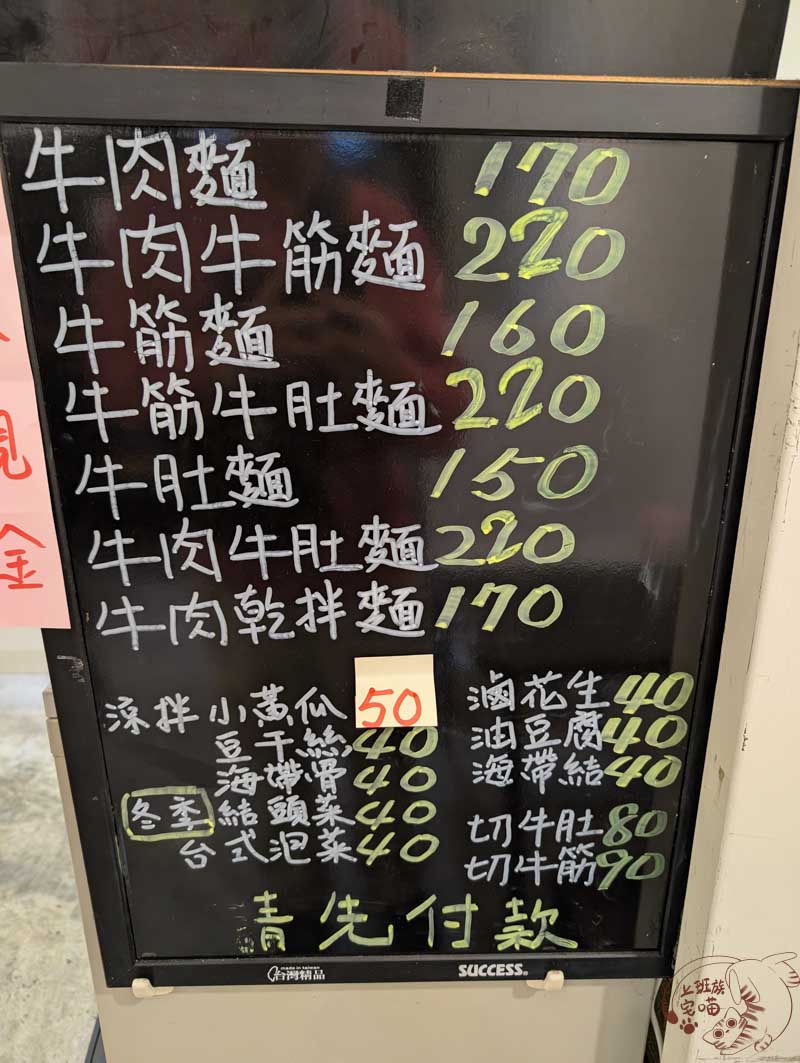 牛肉麵 170
牛肉牛筋麵 220
牛筋麵 160
牛筋牛肚麵 220
牛肚麵 150
牛肉牛肚麵 220
牛肉乾拌麵 170
涼拌 小黃瓜 50
豆干絲 40
海帶骨 40
冬季 結頭菜 40
台式泡菜 40
滷花生 40
油豆腐 40
海帶結 40
切牛肚 80
切牛筋 90
青先付款
made in taiwan
台灣精品
SUCCESS®
現
金
上班族
宅喵